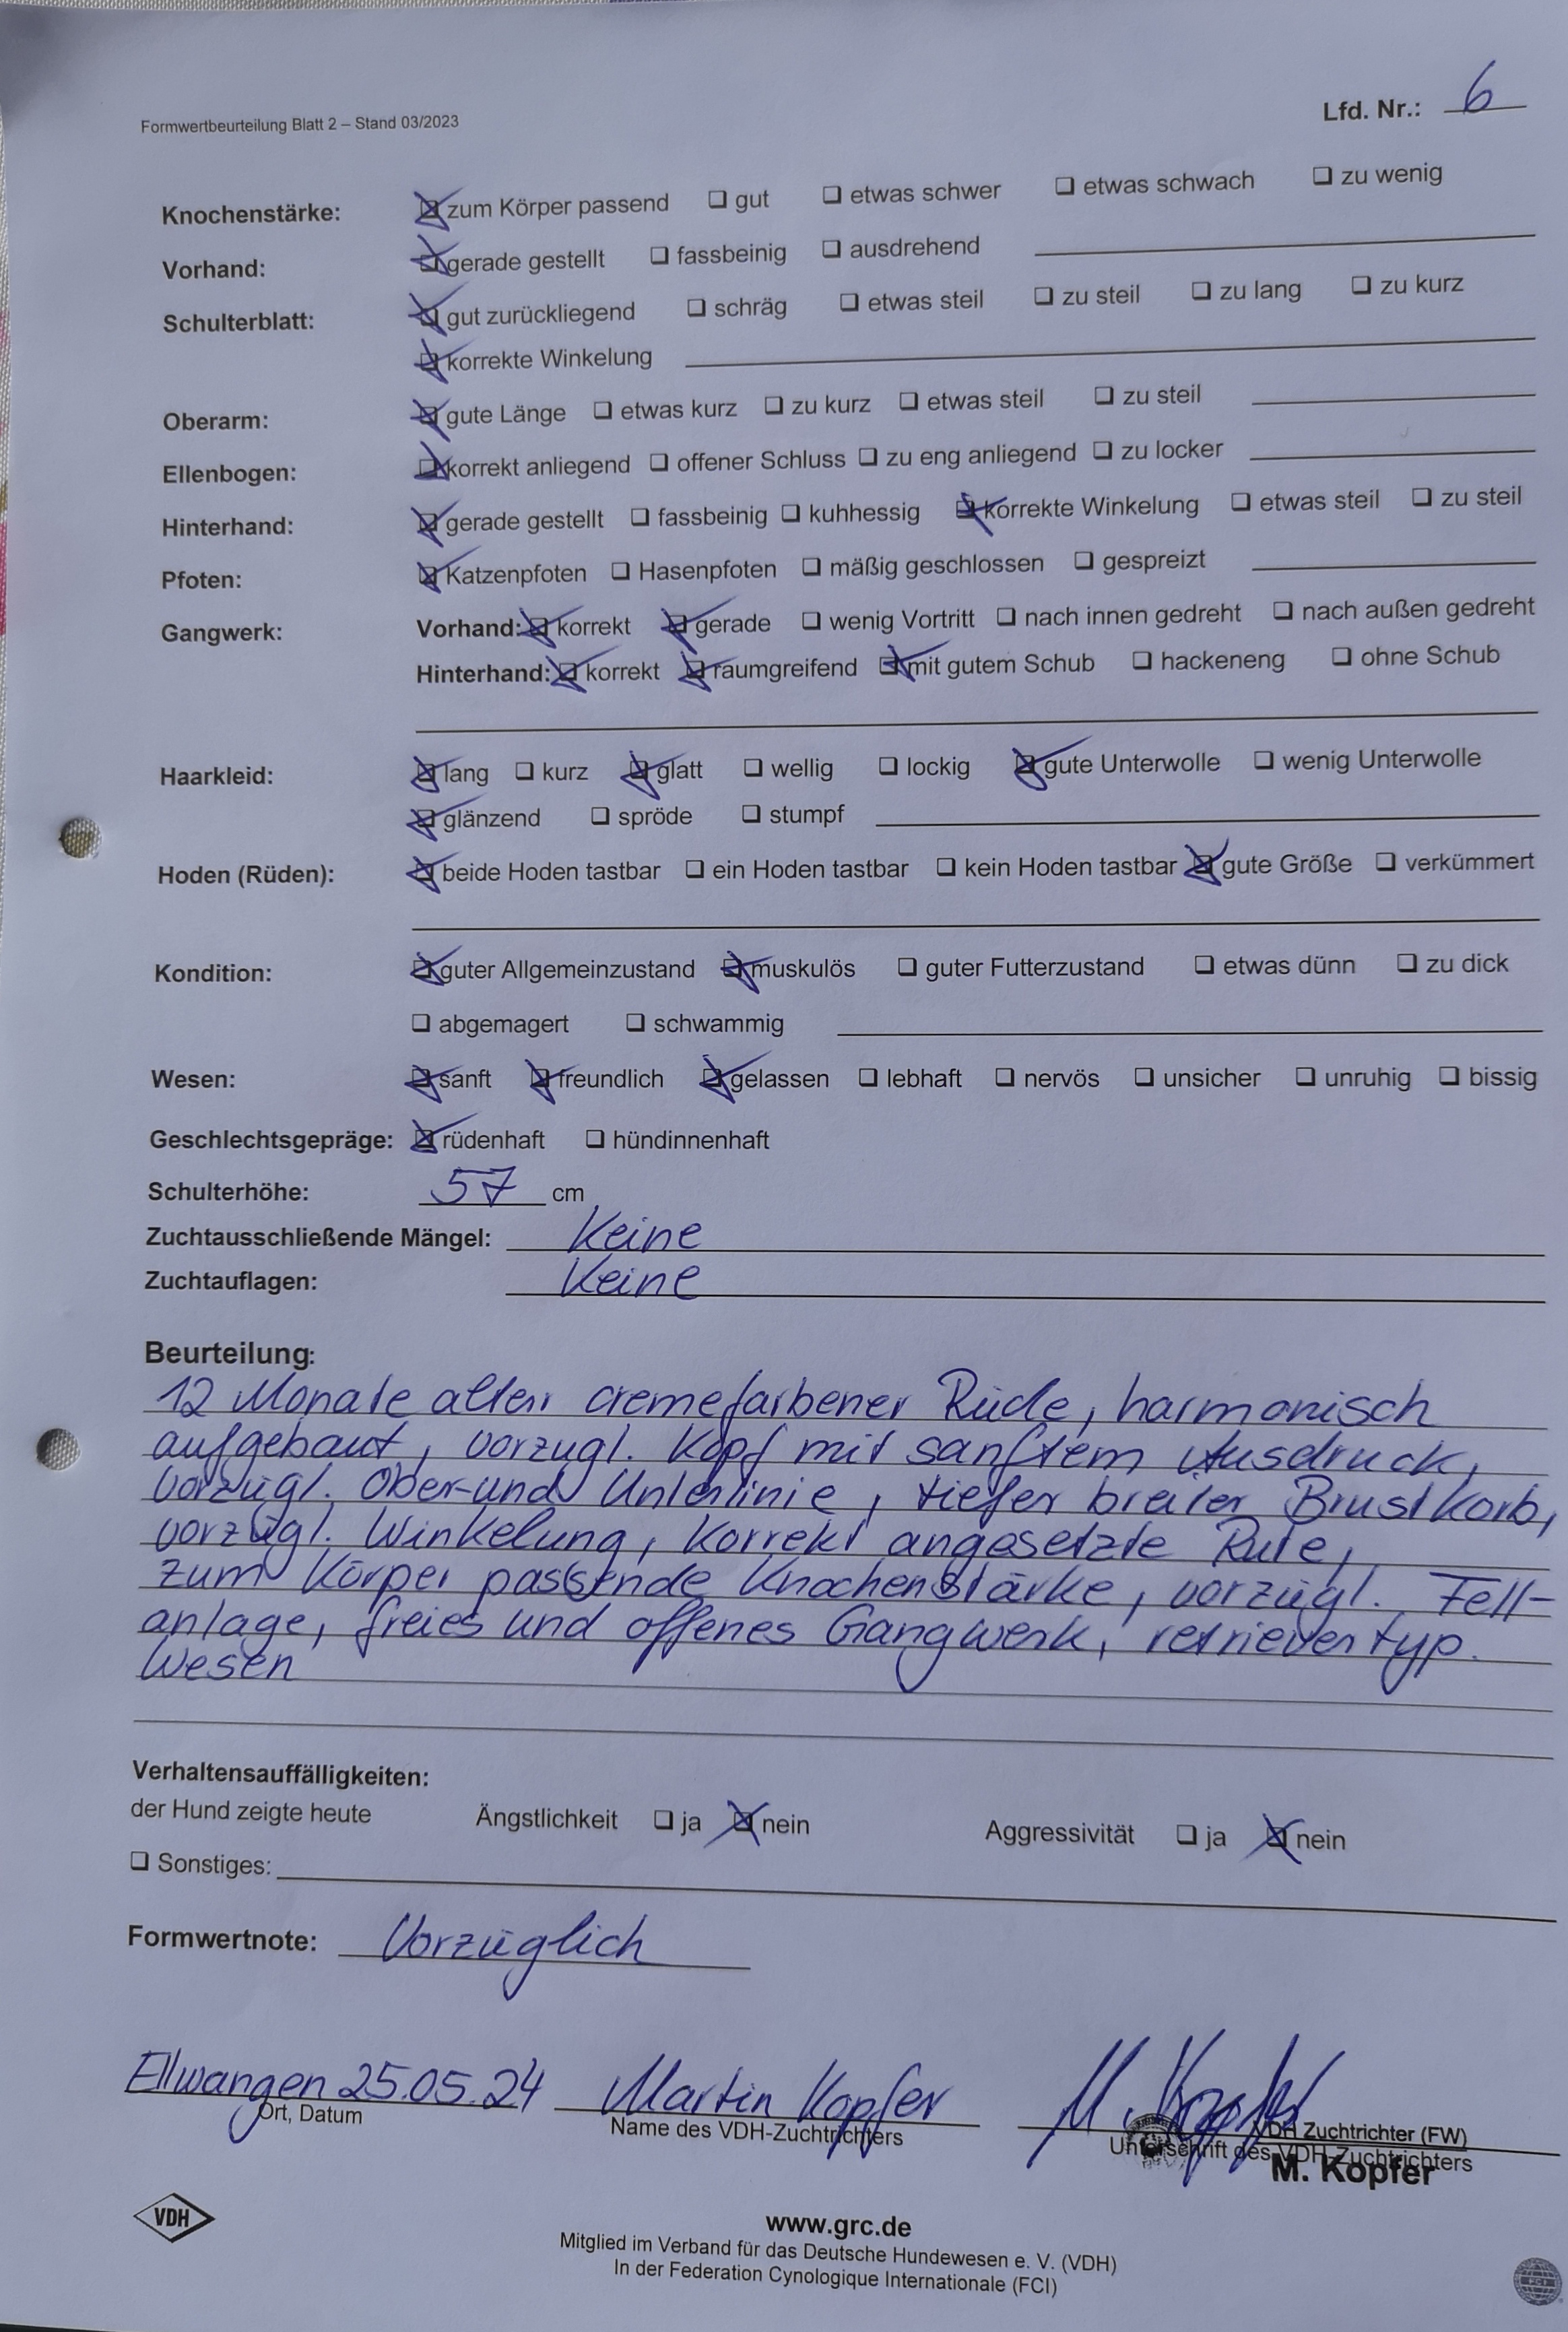 Formwertbeurteilung Blatt 2 – Stand 03/2023
Lfd. Nr.: 6
Knochenstärke: ☒ zum Körper passend ❑ gut ❑ etwas schwer ❑ etwas schwach ❑ zu wenig
Vorhand: ☒ gerade gestellt ❑ fassbeinig ❑ ausdrehend
Schulterblatt: ☒ gut zurückliegend ❑ schräg ❑ etwas steil ❑ zu steil ❑ zu lang ❑ zu kurz
☒ korrekte Winkelung
Oberarm: ☒ gute Länge ❑ etwas kurz ❑ zu kurz ❑ etwas steil ❑ zu steil
Ellenbogen: ☒ korrekt anliegend ❑ offener Schluss ❑ zu eng anliegend ❑ zu locker
Hinterhand: ☒ gerade gestellt ❑ fassbeinig ❑ kuhhessig ☒ korrekte Winkelung ❑ etwas steil ❑ zu steil
Pfoten: ☒ Katzenpfoten ❑ Hasenpfoten ❑ mäßig geschlossen ❑ gespreizt
Gangwerk: Vorhand: ☒ korrekt ☒ gerade ❑ wenig Vortritt ❑ nach innen gedreht ❑ nach außen gedreht
Hinterhand: ☒ korrekt ☒ raumgreifend ☒ mit gutem Schub ❑ hackeneng ❑ ohne Schub
Haarkleid: ☒ lang ❑ kurz ☒ glatt ❑ wellig ❑ lockig ☒ gute Unterwolle ❑ wenig Unterwolle
☒ glänzend ❑ spröde ❑ stumpf
Hoden (Rüden): ☒ beide Hoden tastbar ❑ ein Hoden tastbar ❑ kein Hoden tastbar ☒ gute Größe ❑ verkümmert
Kondition: ☒ guter Allgemeinzustand ☒ muskulös ❑ guter Futterzustand ❑ etwas dünn ❑ zu dick
❑ abgemagert ❑ schwammig
Wesen: ☒ sanft ☒ freundlich ☒ gelassen ❑ lebhaft ❑ nervös ❑ unsicher ❑ unruhig ❑ bissig
Geschlechtsgepräge: ☒ rüdenhaft ❑ hündinnenhaft
Schulterhöhe: 57 cm
Zuchtausschließende Mängel: Keine
Zuchtauflagen: Keine
Beurteilung:
12 Monate alter cremefarbener Rüde, harmonisch
aufgebaut, vorzügl. Kopf mit sanftem Ausdruck,
vorzügl. Ober-und Unterlinie, tiefer breiter Brustkorb,
vorzügl. Winkelung, korrekt angesetzte Rute,
zum Körper passende Knochenstärke, vorzügl. Fell-
anlage, freies und offenes Gangwerk, retrievertyp.
Wesen
Verhaltensauffälligkeiten:
der Hund zeigte heute Ängstlichkeit ❑ ja ☒ nein Aggressivität ❑ ja ☒ nein
❑ Sonstiges:
Formwertnote: Vorzüglich
Ellwangen 25.05.24 Martin Kopfer M. Kopfer
Ort, Datum Name des VDH-Zuchtrichters Unterschrift des VDH-Zuchtrichters
VDH Zuchtrichter (FW)
M. Kopfer
VDH
www.grc.de
Mitglied im Verband für das Deutsche Hundewesen e. V. (VDH)
In der Federation Cynologique Internationale (FCI)
FCI